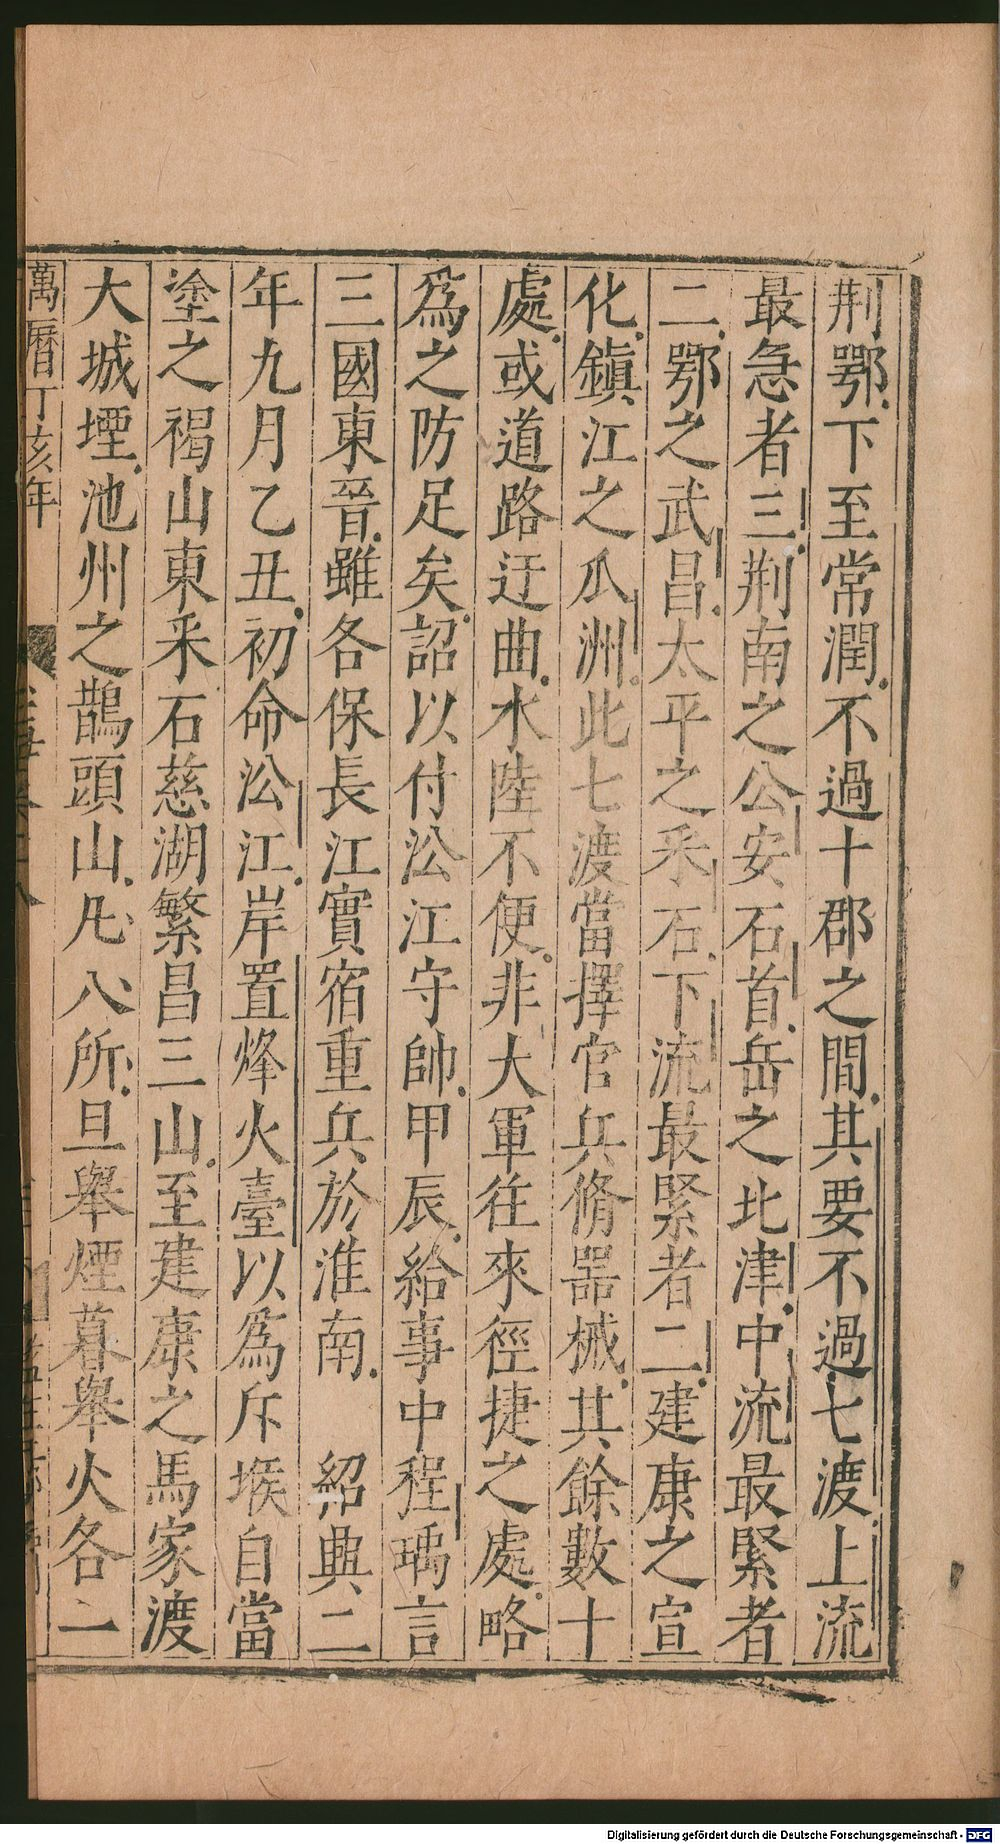 荆鄂下至常潤不過十郡之間其要不過七渡上流
最急者三荆南之公安石首岳之北津中流最緊者
二鄂之武昌太平之釆石下流最緊者二建康之宣
化鎮江之瓜洲此七渡當擇官兵脩器械其餘數十
處或道路迂曲水陸不便非大軍往來徑捷之處略
爲之防足矣詔以付㳂江守帥甲辰給事中程瑀言
三國東晉雖各保長江實宿重兵於淮南　紹興二
年九月乙丑初命㳂江岸置烽火臺以爲斥堠自當
塗之褐山東釆石慈湖繁昌三山至建康之馬家渡
大城堙池州之鵲頭山凡八所旦舉煙暮舉火各一
萬曆丁亥年
Digitalisierung gefördert durch die Deutsche Forschungsgemeinschaft - DFG